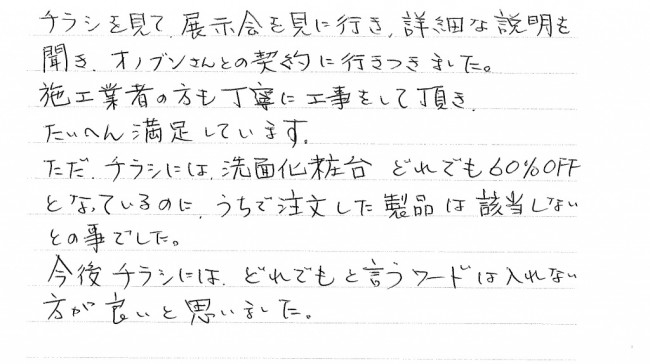 チラシを見て、展示会を見に行き、詳細な説明を
聞き、オノブンさんとの契約に行きつきました。
施工業者の方も丁寧に工事をして頂き、
たいへん満足しています。
ただ、チラシには、洗面化粧台 どれでも60%OFF
となっているのに、うちで注文した製品は該当しない
との事でした。
今後チラシには、どれでもと言うワードは入れない
方が良いと思いました。